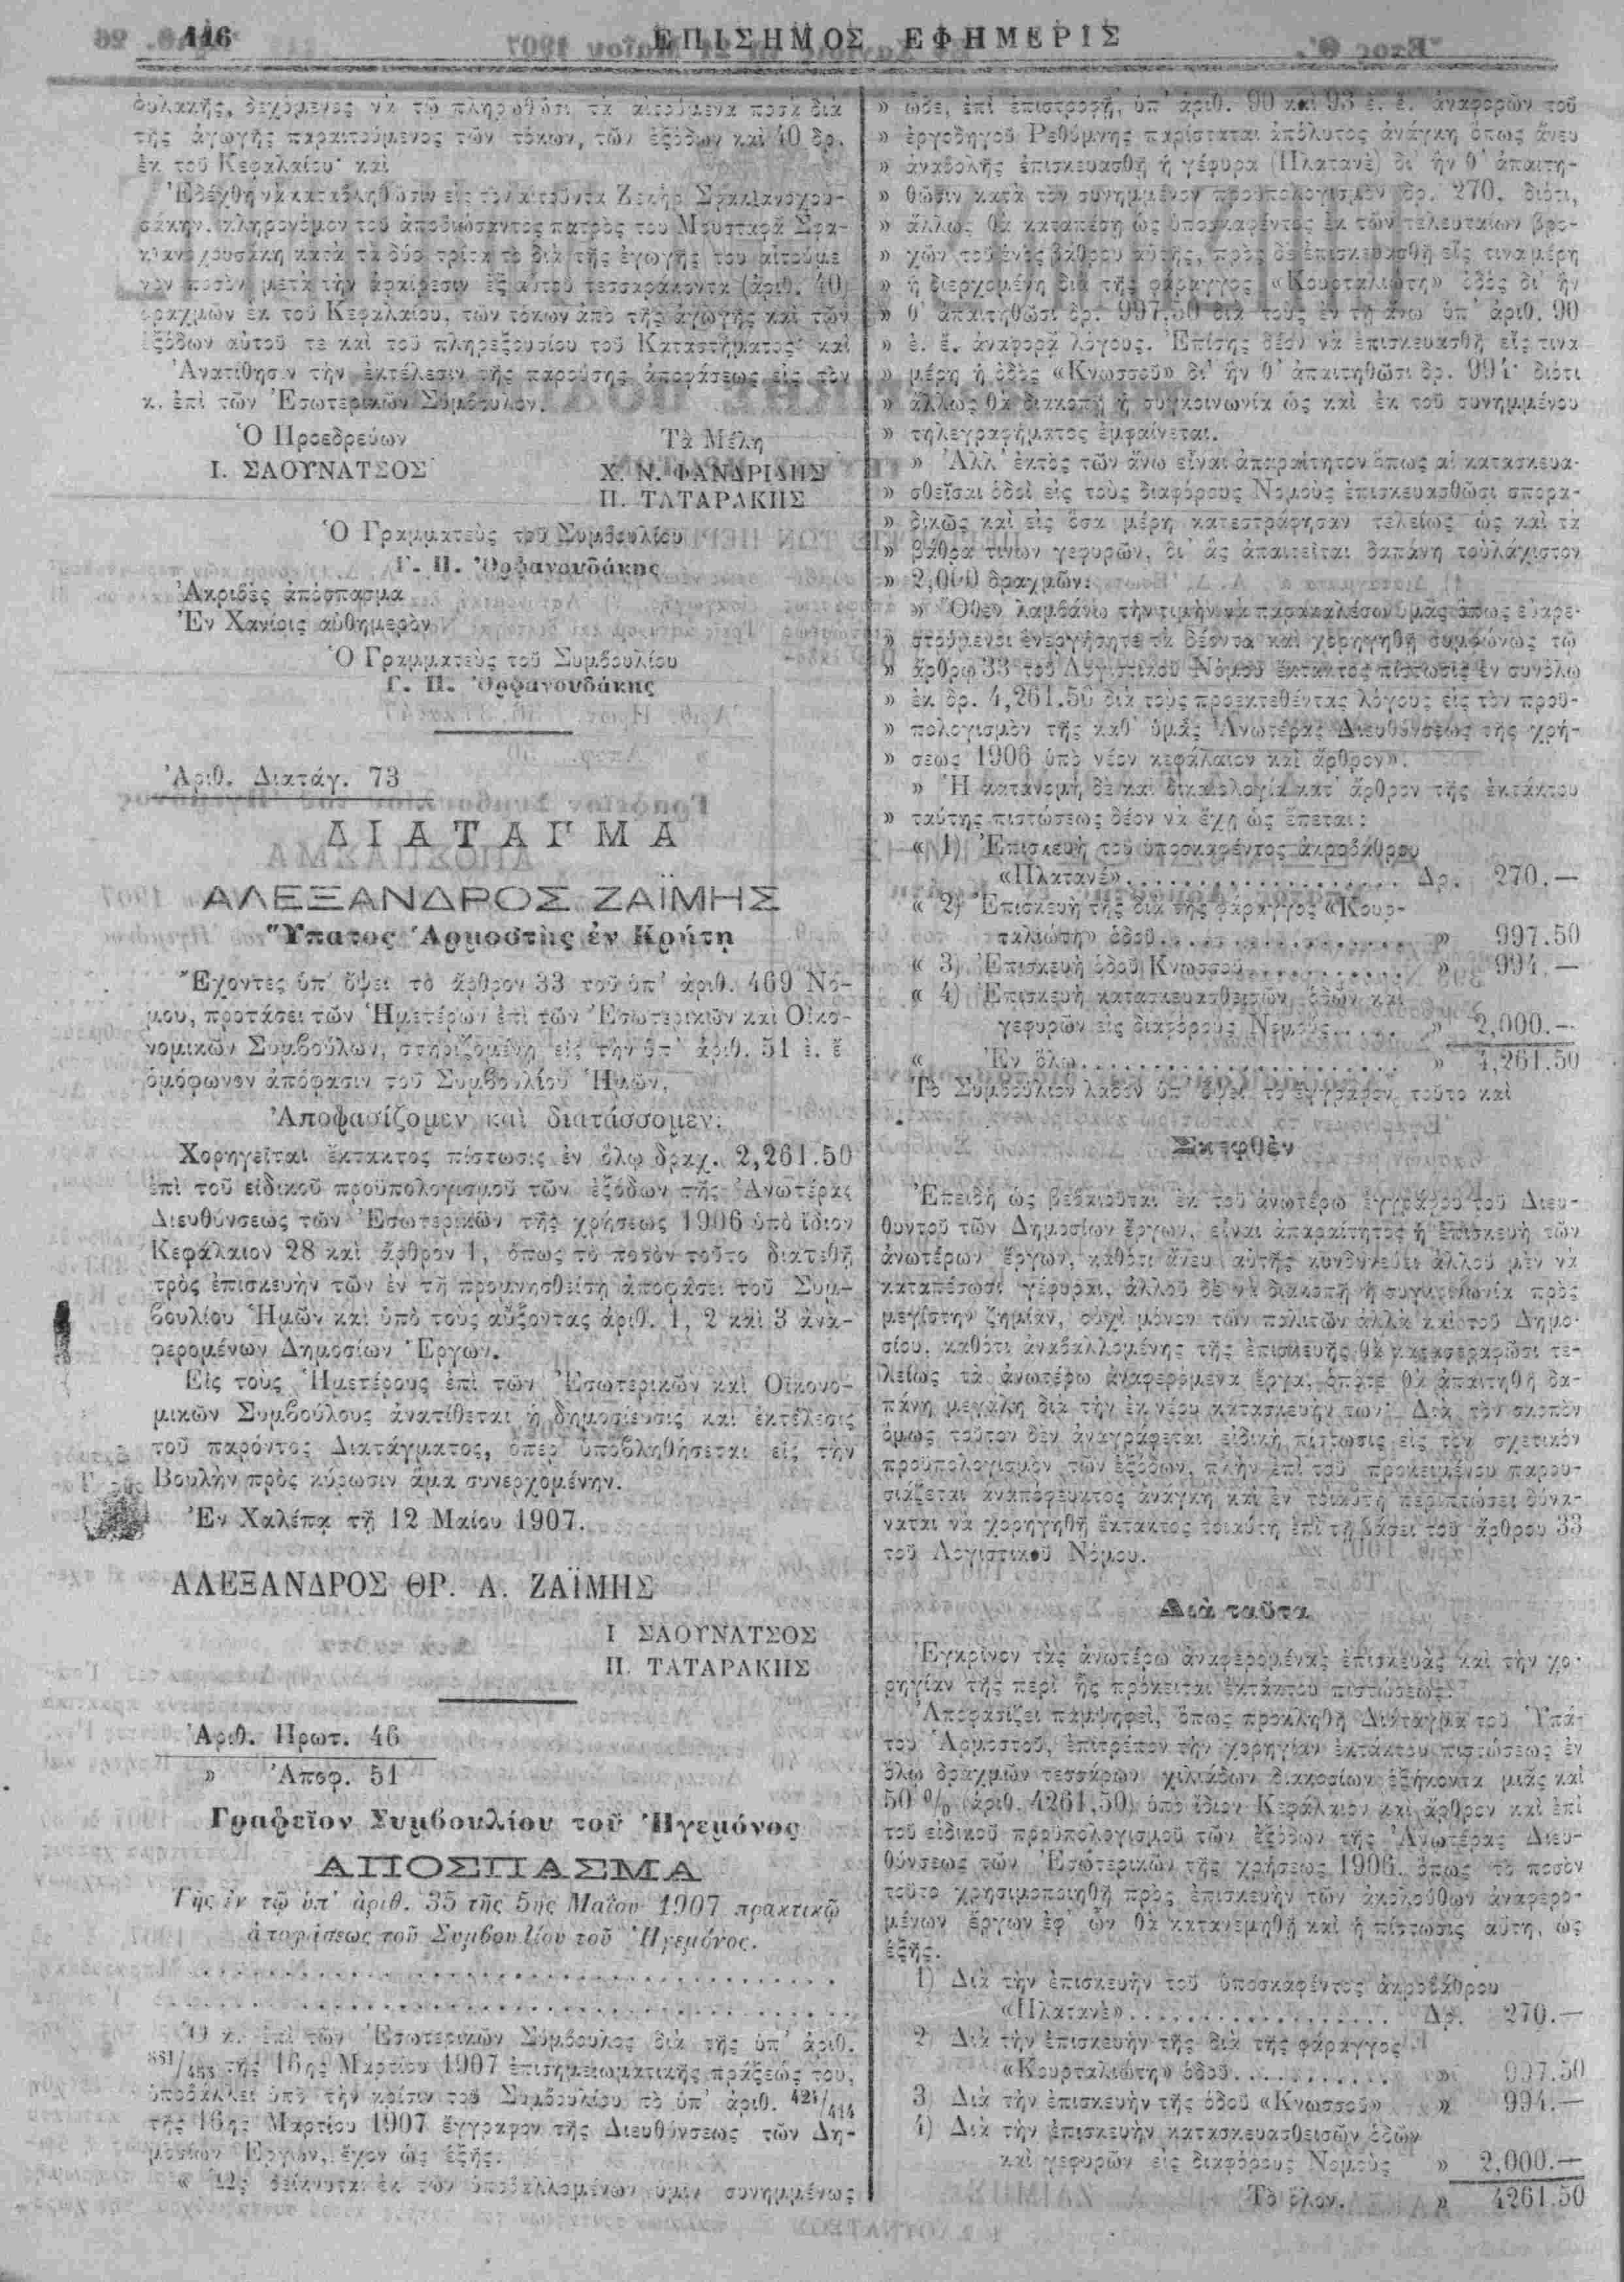 116
ΕΠΙΣΗΜΟΣ ΕΦΗΜΕΡΙΣ
φυλακῆς, δεχόμενος νὰ τῷ πληρωθῶσι τὰ αἰτούμενα ποσὰ διὰ
τῆς ἀγωγῆς παραιτούμενος τῶν τόκων, τῶν ἐξόδων καὶ 40 δρ.
ἐκ τοῦ Κεφαλαίου· καὶ
Ἐδέχθη νὰ καταβληθῶσιν εἰς τὸν αἰτοῦντα Ζεκῆρ
σάκην, κληρονόμον τοῦ ἀποβιώσαντος πατρὸς του Μουσταφᾶ Σφα-
κιανχουσάκη κατὰ τὰ δύο τρίτα τὸ διὰ τῆς ἐγωγῆς του αἰτούμε
νον ποσὸν μετὰ τὴν ἀφαίρεσιν ἐξ αὐτοῦ τεσσαράκοντα (ἀριθ. 40)
δραχμῶν ἐκ τοῦ Κεφαλαίου, τῶν τόκων ἀπὸ τῆς ἀγωγῆς καὶ τῶν
ἐξόδων αὐτοῦ τε καὶ τοῦ πληρεξουσίου τοῦ Καταστήματος· καὶ
Ἀνατίθησιν τὴν ἐκτέλεσιν τῆς παρούσης ἀποφάσεως εἰς τὸν
κ. ἐπὶ τῶν Ἐσωτερικῶν Σύμβουλον.
Ὁ Προεδρεύων
Ι. ΣΑΟΥΝΑΤΣΟΣ
Τὰ Μέλη
Χ. Ν. ΦΑΝΔΡΙΔΗΣ
Π. ΤΑΤΑΡΑΚΗΣ
Ὁ Γραμματεὺς τοῦ Συμβουλίου
Γ. Π. Ὀρφανουδάκης
Ἀκριβὲς ἀπόσπασμα
Ἐν Χανίοις αὐθημερὸν
Ὁ Γραμματεὺς τοῦ Συμβουλίου
Γ. Π. Ὀρφανουδάκης
Ἀριθ. Διατάγ. 73
ΔΙΑΤΑΓΜΑ
ΑΛΕΞΑΝΔΡΟΣ ΖΑΪΜΗΣ
Ὕπατος Ἁρμοστὴς ἐν Κρήτῃ
Ἔχοντες ὑπ' ὄψει τὸ ἄρθρον 33 τοῦ ὑπ' ἀριθ. 469 Νό-
μου, προτάσει τῶν Ἡμετέρων ἐπὶ τῶν Ἐσωτερικῶν καὶ Οἰκο-
νομικῶν Συμβούλων, στηριζομένῃ εἰς τὴν ὑπ' ἀριθ. 51 ἐ. ἔ
ὁμόφωνον ἀπόφασιν τοῦ Συμβουλίου Ἡμῶν,
Ἀποφασίζομεν καὶ διατάσσομεν:
Χορηγεῖται ἔκτακτος πίστωσις ἐν ὅλῳ δραχ. 2,261.50
ἐπὶ τοῦ εἰδικοῦ προϋπολογισμοῦ τῶν ἐξόδων τῆς Ἀνωτέρας
Διευθύνσεως τῶν Ἐσωτερικῶν τῆς χρήσεως 1906 ὑπὸ ἴδιον
Κεφάλαιον 28 καὶ ἄρθρον 1, ὅπως τὸ ποσὸν τοῦτο διατεθῇ
πρὸς ἐπισκευὴν τῶν ἐν τῇ προμνησθείσῃ ἀποφάσει τοῦ Συμ-
βουλίου Ἡμῶν καὶ ὑπὸ τοὺς αὔξοντας ἀριθ. 1, 2 καὶ 3 ἀνα-
φερομένων Δημοσίων Ἔργων.
Εἰς τοὺς Ἡμετέρους ἐπὶ τῶν Ἐσωτερικῶν καὶ Οἰκονο-
μικῶν Συμβούλους ἀνατίθεται ἡ δημοσίευσις καὶ ἐκτέλεσις
τοῦ παρόντος Διατάγματος, ὅπερ ὑποβληθήσεται εἰς τὴν
Βουλὴν πρὸς κύρωσιν ἅμα συνερχομένην.
Ἐν Χαλέπᾳ τῇ 12 Μαΐου 1907.
ΑΛΕΞΑΝΔΡΟΣ ΘΡ. Α. ΖΑΪΜΗΣ
Ι ΣΑΟΥΝΑΤΣΟΣ
Π. ΤΑΤΑΡΑΚΗΣ
Ἀριθ. Πρωτ. 46
» Ἀποφ. 51
Γραφεῖον Συμβουλίου τοῦ Ἡγεμόνος
ΑΠΟΣΠΑΣΜΑ
Τῆς ἐν τῷ ὑπ' ἀριθ. 35 τῆς 5ης Μαΐου 1907 πρακτικῷ
ἀποφάσεως τοῦ Συμβουλίου τοῦ Ἡγεμόνος.
Ὁ κ. ἐπὶ τῶν Ἐσωτερικῶν Σύμβουλος διὰ τῆς ὑπ' ἀριθ.
τῆς 16ης Μαρτίου 1907 ἐπισημειωματικῆς πράξεώς του,
ὑποβάλλει ὑπὸ τὴν κρίσιν τοῦ Συμβουλίου τὸ ὑπ' ἀριθ. 421/414
τῆς 16ης Μαρτίου 1907 ἔγγραφον τῆς Διευθύνσεως τῶν Δη-
μοσίων Ἔργων, ἔχον ὡς ἑξῆς.
« Ὡς δείκνυται ἐκ τῶν ὑποβαλλομένων ὑμῖν συνημμένως
» ὧδε, ἐπὶ ἐπιστροφῇ, ὑπ' ἀριθ. 90 καὶ 93 ἐ. ἔ. ἀναφορῶν τοῦ
» ἐργοδηγοῦ Ρεθύμνης παρίσταται ἀπόλυτος ἀνάγκη ὅπως ἄνευ
» ἀναβολῆς ἐπισκευασθῇ ἡ γέφυρα (Πλατανὲ) δι' ἣν θ' ἀπαιτη-
» θῶσιν κατὰ τὸν συνημμένον προϋπολογισμὸν δρ. 270, διότι,
» ἄλλως θὰ καταπέσῃ ὡς ὑποσκαφέντος ἐκ τῶν τελευταίων βρο-
» χῶν τοῦ ἑνὸς βάθρου αὐτῆς, πρὸς δὲ ἐπισκευασθῇ εἰς τινα μέρη
» ἡ διερχομένη διὰ τῆς φάραγγος «Κουρταλιώτη» ὁδὸς δι' ἣν
» θ' ἀπαιτηθῶσι δρ. 997,50 διὰ τοὺς ἐν τῇ ἄνω ὑπ' ἀριθ. 90
» ἐ. ἔ. ἀναφορᾷ λόγους. Ἐπίσης δέον νὰ ἐπισκευασθῇ εἴς τινα
» μέρη ἡ ὁδὸς «Κνωσσοῦ» δι' ἣν θ' ἀπαιτηθῶσι δρ. 994· διότι
» ἄλλως θὰ διακοπῇ ἡ συγκοινωνία ὡς καὶ ἐκ τοῦ συνημμένου
» τηλεγραφήματος ἐμφαίνεται.
» Ἀλλ' ἐκτὸς τῶν ἄνω εἶναι ἀπαραίτητον ὅπως αἱ κατασκευα-
» σθεῖσαι ὁδοὶ εἰς τοὺς διαφόρους Νομοὺς ἐπισκευασθῶσι σπορα-
» δικῶς καὶ εἰς ὅσα μέρη κατεστράφησαν τελείως ὡς καὶ τὰ
» βάθρα τινων γεφυρῶν, δι' ἃς ἀπαιτεῖται δαπάνη τοὐλάχιστον
» 2,000 δραχμῶν.
» Ὅθεν λαμβάνω τὴν τιμὴν νὰ παρακαλέσω ὑμᾶς ὅπως εὐαρε-
» στούμενοι ἐνεργήσητε τὰ δέοντα καὶ χορηγηθῇ συμφώνως τῷ
» ἄρθρῳ 33 τοῦ Λογιστικοῦ Νόμου ἔκτακτος πίστωσις ἐν συνόλῳ
» ἐκ δρ. 4,261.50 διὰ τοὺς προεκτεθέντας λόγους εἰς τὸν προϋ-
» πολογισμὸν τῆς καθ' ὑμᾶς Ἀνωτέρας Διευθύνσεως τῆς χρή-
» σεως 1906 ὑπὸ νέον κεφάλαιον καὶ ἄρθρον».
» Ἡ κατανομὴ δὲ καὶ δικαιολογία κατ' ἄρθρον τῆς ἐκτάκτου
» ταύτης πιστώσεως δέον νὰ ἔχῃ ὡς ἕπεται:
« 1) Ἐπισκευὴ τοῦ ὑποσκαφέντος ἀκροβάθρου
«Πλατανὲ».................. Δρ. 270.—
« 2) Ἐπισκευὴ τῆς διὰ τῆς φάραγγος «Κουρ-
ταλιώτη» ὁδοῦ................ » 997.50
« 3) Ἐπισκευὴ ὁδοῦ Κνωσσοῦ.......... » 994.—
« 4) Ἐπισκευὴ κατασκευασθεισῶν ὁδῶν καὶ
γεφυρῶν εἰς διαφόρους Νομοὺς..... » 2,000.—
« Ἐν ὅλῳ...................... » 4,261.50
Τὸ Συμβούλιον λαβὸν ὑπ' ὄψει τὸ ἔγγραφον τοῦτο καὶ
Σκεφθὲν
Ἐπειδὴ ὡς βεβαιοῦται ἐκ τοῦ ἀνωτέρω ἐγγράφου τοῦ Διευ-
θυντοῦ τῶν Δημοσίων ἔργων, εἶναι ἀπαραίτητος ἡ ἐπισκευὴ τῶν
ἀνωτέρων ἔργων, καθότι ἄνευ αὐτῆς κινδυνεύει ἀλλοῦ μὲν νὰ
καταπέσωσι γέφυραι, ἀλλοῦ δὲ νὰ διακοπῇ ἡ συγκοινωνία πρὸς
μεγίστην ζημίαν, οὐχὶ μόνον τῶν πολιτῶν ἀλλὰ καὶ τοῦ Δημο-
σίου, καθότι ἀναβαλλομένης τῆς ἐπισκευῆς θὰ καταστραφῶσι τε-
λείως τὰ ἀνωτέρω ἀναφερόμενα ἔργα, ὁπότε θὰ ἀπαιτηθῇ δα-
πάνη μεγάλη διὰ τὴν ἐκ νέου κατασκευήν των· Διὰ τὸν σκοπὸν
ὅμως τοῦτον δὲν ἀναγράφεται εἰδικὴ πίστωσις εἰς τὸν σχετικὸν
προϋπολογισμὸν τῶν ἐξόδων, πλὴν ἐπὶ τοῦ προκειμένου παρου-
σιάζεται ἀναπόφευκτος ἀνάγκη καὶ ἐν τοιαύτῃ περιπτώσει δύνα-
ναται νὰ χορηγηθῇ ἔκτακτος τοιαύτη ἐπὶ τῇ βάσει τοῦ ἄρθρου 33
τοῦ Λογιστικοῦ Νόμου.
Διὰ ταῦτα
Ἐγκρίνον τὰς ἀνωτέρω ἀναφερομένας ἐπισκευὰς καὶ τὴν χο-
ρηγίαν τῆς περὶ ἧς πρόκειται ἐκτάκτου πιστώσεως.
Ἀποφασίζει παμψηφεὶ, ὅπως προκληθῇ Διάταγμα τοῦ Ὑπά-
του Ἁρμοστοῦ, ἐπιτρέπον τὴν χορηγίαν ἐκτάκτου πιστώσεως ἐν
ὅλῳ δραχμῶν τεσσάρων χιλιάδων διακοσίων ἑξήκοντα μιᾶς καὶ
50 % (ἀριθ. 4261,50) ὑπὸ ἴδιον Κεφάλαιον καὶ ἄρθρον καὶ ἐπὶ
τοῦ εἰδικοῦ προϋπολογισμοῦ τῶν ἐξόδων τῆς Ἀνωτέρας Διευ-
θύνσεως τῶν Ἐσωτερικῶν τῆς χρήσεως 1906, ὅπως τὸ ποσὸν
τοῦτο χρησιμοποιηθῇ πρὸς ἐπισκευὴν τῶν ἀκολούθων ἀναφερο-
μένων ἔργων ἐφ' ὧν θὰ κατανεμηθῇ καὶ ἡ πίστωσις αὕτη, ὡς
ἑξῆς.
1) Διὰ τὴν ἐπισκευὴν τοῦ ὑποσκαφέντος ἀκροβάθρου
«Πλατανὲ».................. Δρ. 270.—
2) Διὰ τὴν ἐπισκευὴν τῆς διὰ τῆς φάραγγος
«Κουρταλιώτη» ὁδοῦ........... » 997.50
3) Διὰ τὴν ἐπισκευὴν τῆς ὁδοῦ «Κνωσσοῦ» » 994.—
4) Διὰ τὴν ἐπισκευὴν κατασκευασθεισῶν ὁδῶν
καὶ γεφυρῶν εἰς διαφόρους Νομοὺς » 2,000.—
Τὸ ὅλον. » 4261.50